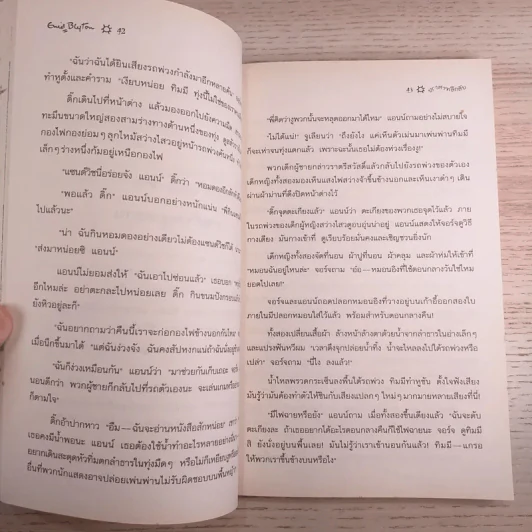 Enid Blyton 92
"ฉันว่าฉันได้ยินเสียงรถพ่วงกำลังมาอีกหลายคัน"
ทำหูตั้งและคำราม "เงียบหน่อย ทิมมี
ดิ๊กเดินไปที่หน้าต่าง แล้วมองออกไปยังความมืด
ทะมึนขนาดใหญ่สองสามร่างทางด้านหนึ่งของทุ่ง
กองไฟกองย่อมๆ ลุกไหม้สว่างไสวอยู่หน้ารถพ่วงคันหนึ่ง
เล็กๆ ร่างหนึ่งก้มอยู่เหนือกองไฟ
"แซนด์วิชนี่อร่อยจัง แอนน์" ดิ๊กว่า
"พอแล้ว ดิ๊ก" แอนน์บอกอย่างหนักแน่น
ไปแล้วนะ"
"น่า ฉันกินหอมดองอย่างเดียวไม่ต้องแซนด์วิชก็ได้
"ส่งมาหน่อยซิ แอนน์"
แอนน์ไม่ยอมส่งให้ "ฉันเอาไปซ่อนแล้ว"
อีกไหมล่ะ อย่าตะกละไปหน่อยเลย ดิ๊ก
ยังหิวอยู่ละก็"
"ฉันอยากถามว่าคืนนี้เราจะก่อกองไฟข้างนอกกันไหม"
เมื่อนึกขึ้นมาได้ "แต่ฉันง่วงจัง
"ฉันก็ง่วงเหมือนกัน" แอนน์ว่า "มาช่วยกันเก็บเถอะ
นอนดีกว่า พวกผู้ชายก็กลับไปที่รถตัวเองนะ
ก็ตามใจ"
ดิ๊กอ้าปากหาว "อืม—ฉันจะอ่านหนังสือสักหน่อย"
เธอคงมีน้ำพอนะ แอนน์ เธอต้องใช้น้ำทำอะไรหลายอย่าง
93
"พี่คิดว่างูพวกนั้นจะหลุดออกมาได้ไหม" แอนน์ถามอย่างไม่สบายใจ
"ไม่ได้แน่!" จูเลียนว่า "ถึงยังไง แค่เห็นตัวเม่นมาเพ่นพ่านทิมมี
ก็จะเห่าจนทุ่งแตกแล้ว เพราะฉะนั้นเธอไม่ต้องห่วงเรื่องงู!"
พวกเด็กผู้ชายกล่าวราตรีสวัสดิ์แล้วกลับไปยังรถพ่วงของตัวเอง
เด็กหญิงทั้งสองมองเห็นแสงไฟสว่างจ้าขึ้นข้างนอกและเห็นเงาดำๆ เดิน
ผ่านผ้าม่านที่ดึงปิดหน้าต่างไว้
"ดิ๊กจุดตะเกียงแล้ว" แอนน์ว่า ตะเกียงของพวกเธอจุดไว้แล้ว ภาย
ในรถพ่วงของเด็กผู้หญิงสว่างไสวดูอบอุ่นน่าอยู่ แอนน์แสดงให้จอร์จดูวิธี
กางเตียง มันกางเข้าที่ ดูเรียบร้อยมั่นคงและเชิญชวนยิ่งนัก
เด็กหญิงทั้งสองจัดที่นอน ผ้าปูที่นอน ผ้าคลุม และผ้าห่มให้เข้าที่
"หมอนฉันอยู่ไหนล่ะ" จอร์จถาม "อ๋อ—หมอนอิงที่ใช้ตอนกลางวันใช่ไหม
ยอดไปเลย!"
จอร์จและแอนน์ถอดปลอกหมอนอิงที่วางอยู่บนเก้าอี้ออกสองใบ
ภายในมีปลอกหมอนใส่ไว้แล้ว พร้อมสำหรับตอนกลางคืน!
ทั้งสองเปลี่ยนเสื้อผ้า ล้างหน้าล้างตาด้วยน้ำจากลำธารในอ่างเล็กๆ
และแปรงฟันหวีผม "เวลาดึงจุกปล่อยน้ำทิ้ง น้ำจะไหลลงไปใต้รถพ่วงหรือ
เปล่า" จอร์จถาม "นี่ไง ลงแล้ว!"
น้ำไหลพรวดกระเซ็นลงพื้นใต้รถพ่วง ทิมมีทำหูชัน ตั้งใจฟังเสียง
มันรู้ว่ามันต้องทำตัวให้ชินกับเสียงแปลกๆ ใหม่ๆ มากมายหลายเสียงที่นี่!
"มีไฟฉายหรือยัง" แอนน์ถาม เมื่อทั้งสองขึ้นเตียงแล้ว "ฉันจะดับ
ตะเกียงละ ถ้าเธออยากได้อะไรตอนกลางคืนก็ใช้ไฟฉายนะ จอร์จ ดูทิมมี
สิ ยังนั่งอยู่บนพื้นเลย! มันไม่รู้ว่าเราเข้านอนกันแล้ว! ทิมมี—แกรอ
ให้พวกเราขึ้นข้างบนหรือไง"